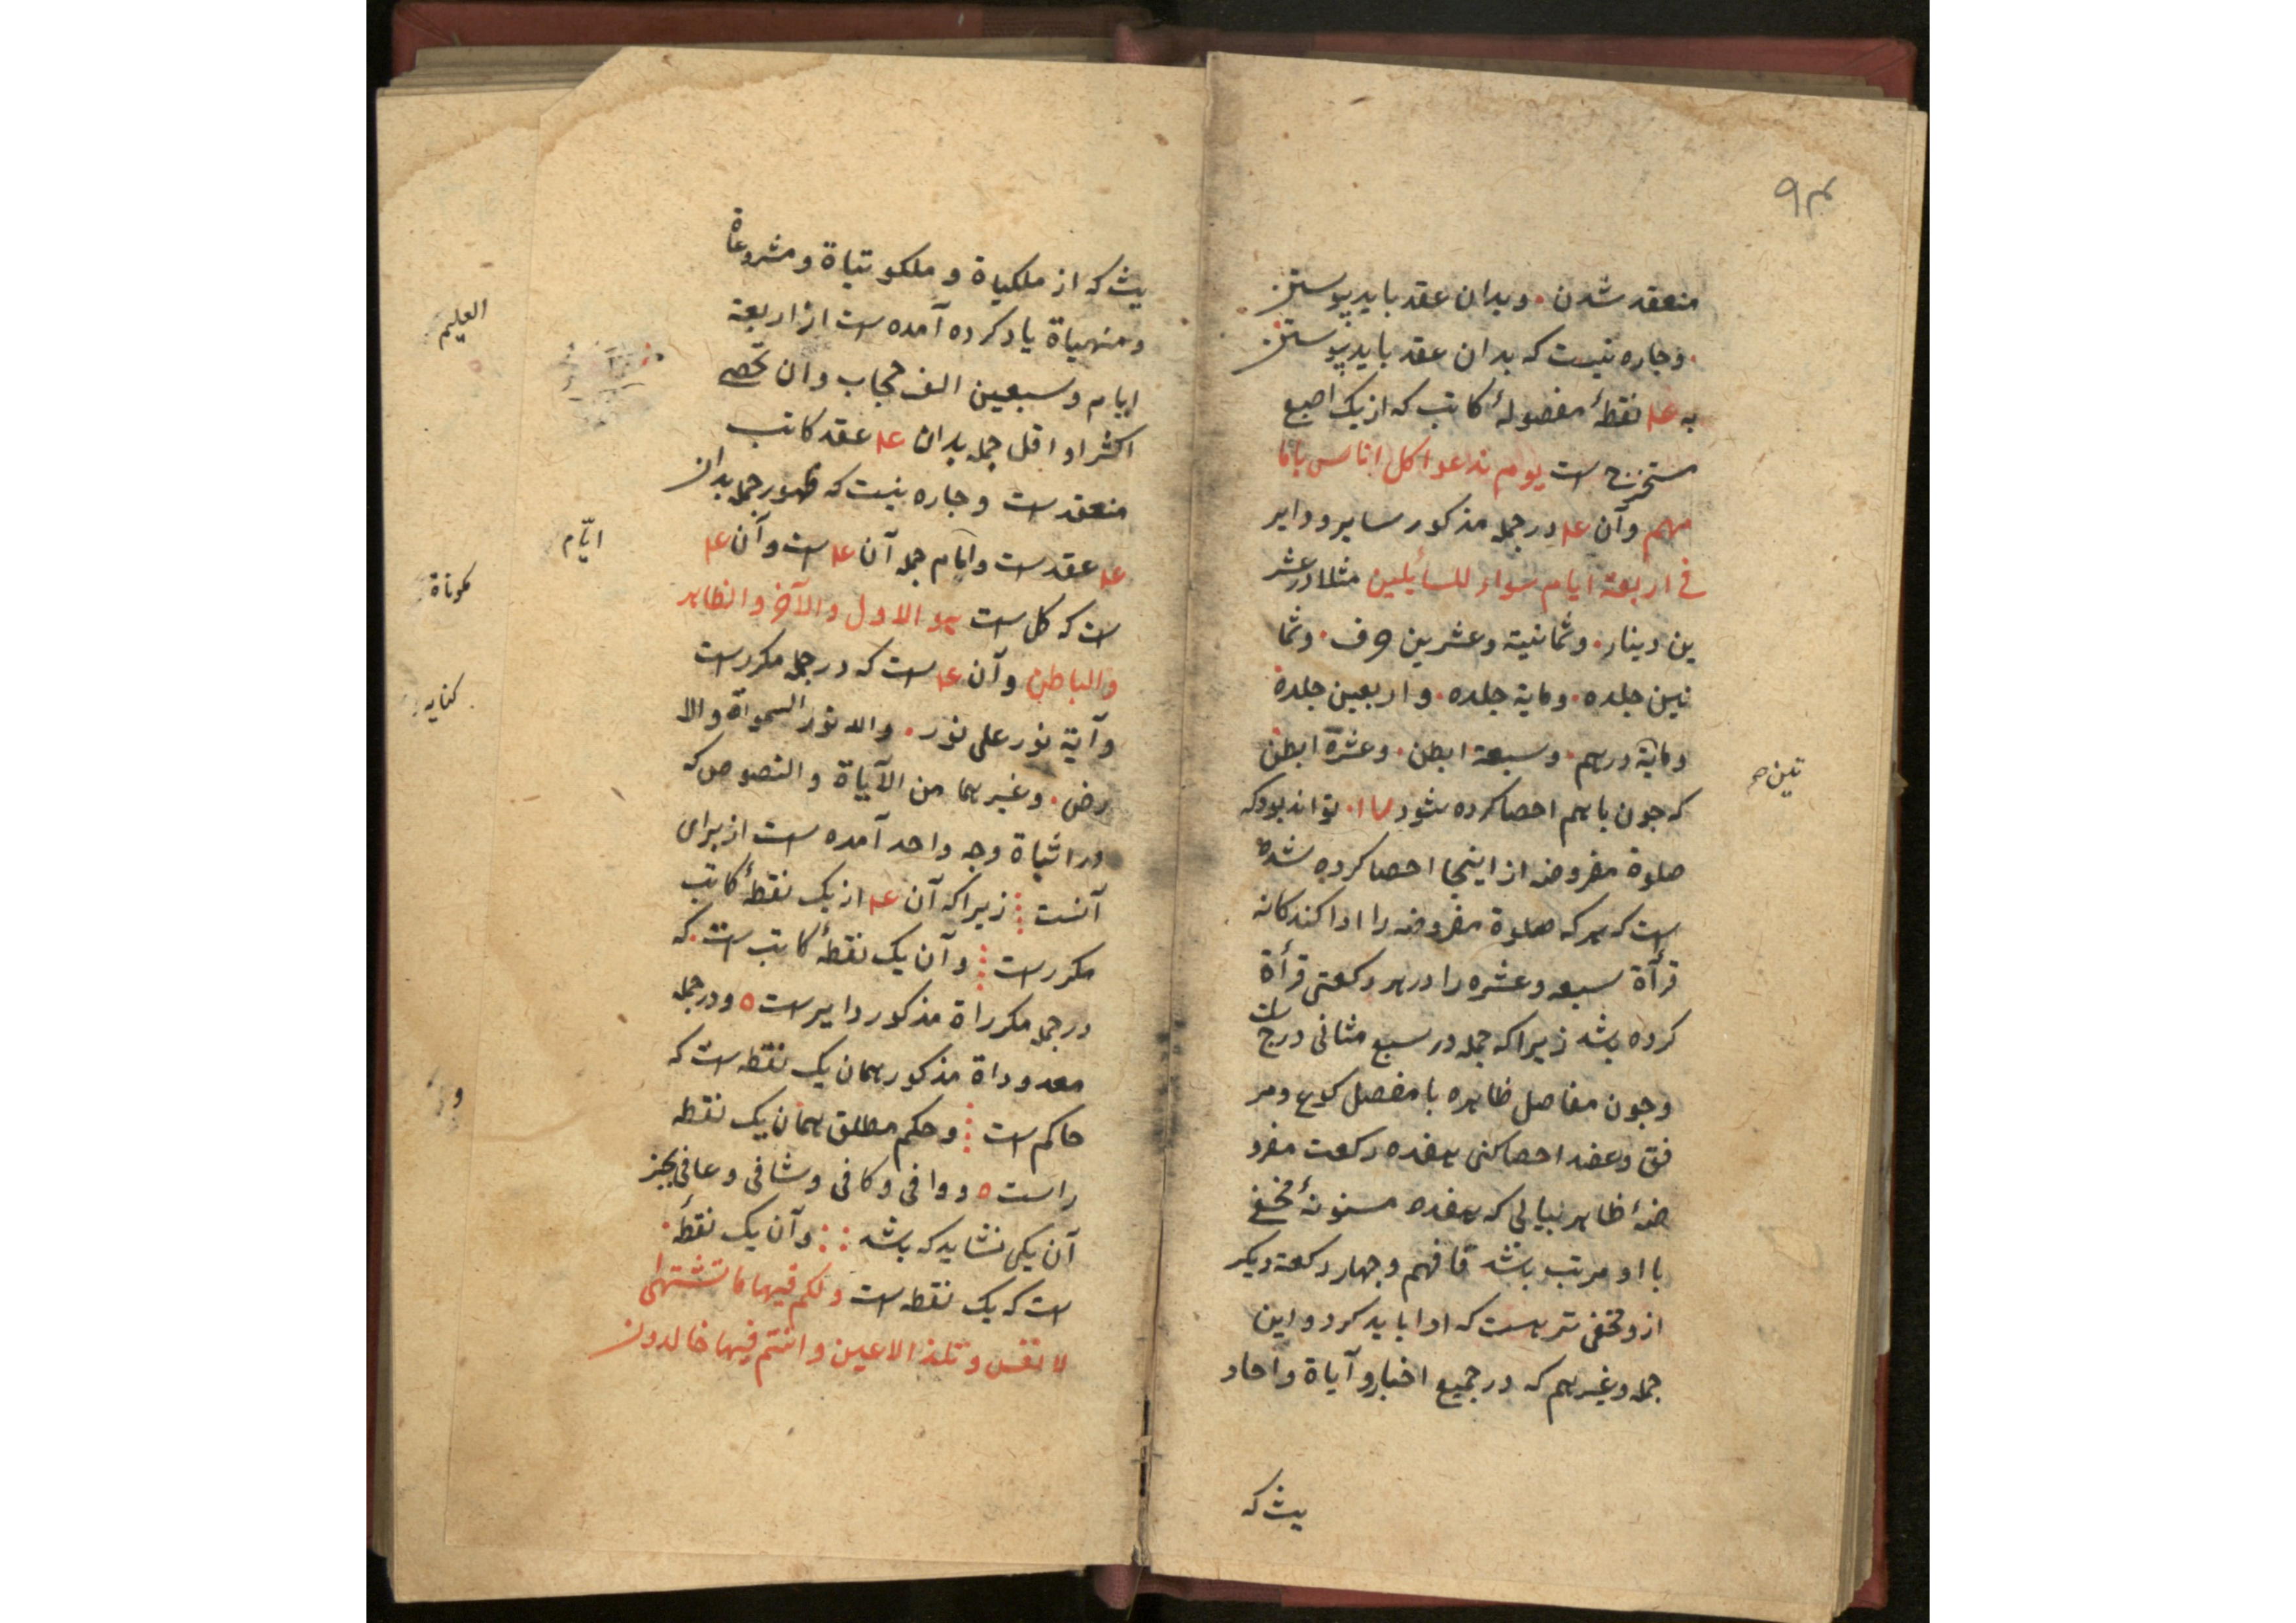 ۹۴
منعقد شدن . وبدان عقد باید پیوستن
. وجاره نیست که بدان عقد باید پیوستن
به عد نقطهٔ مفصولهٔ کاتب که از یک اصبع
مستخرج است یوم ندعوا کل اناس باما
مهم وآن عد در جمله مذکور سایر و دایر
فی اربعة ایام سواء للسایلین مثلا در عشر
ین دینار . وثمانیة وعشرین حرف . وثما
نین جلده . ومایة جلده . واربعین جلدة
ومایة درهم . وسبعة ابطن . وعشرة ابطن
که جون باهم احصا کرده شود تواند بود که
صلوة مفروضه از اینجا احصا کرده شده
است که هر که صلوة مفروضه را ادا کند کانه
قرآة سبعه وعشره را در هر رکعتی قرأة
کرده باشد زیرا که جمله در سبع مثانی درج است
وجون مفاصل ظاهره با مفصل ومر
فق وعضد احصا کنی هفده رکعت مفرو
ضهٔ ظاهر بیابی که هفده مسنونهٔ مخفی
با او مرتب باشد فافهم وجهار رکعة دیکر
ازو مخفی تر هست که ادا باید کرد واین
جمله وغیرهم که در جمیع اخبار و آیاة واحاد
یث که
تین
یث که از ملکیاة و ملکوتیاة ومشروعاة
ومنهیاة یاد کرده آمده است از اربعة
ایام وسبعین الف حجاب وان تحصی
اکثر او اقل جمله بدان عد عقد کاتب
منعقد است وجاره نیست که ظهور جمله بدان
عد عقدست وایام جمله آن عد است وآن عد
است که کل است هو الاول والآخر والظاهر
والباطن وآن عد است که در جمله مکرر است
وآیة نور علی نور . والله نور السمواة والا
رض . وغیرهما من الآیاة والنصوص که
در اثباة وجه واحد آمده است از برای
آنست زیرا که آن عد از یک نقطهٔ کاتب
مکررست وآن یک نقطهٔ کاتب است . که
در جمله مکرراة مذکور دایر است ه ودر جمله
معدوداة مذکور همان یک نقطه است که
حاکم است وحکم مطلق همان یک نقطه
راست ه ووافی وکافی وشافی وعافی بجز
آن یکی نشاید که باشد وآن یک نقطهٔ .
است که یک نقطه است ولکم فیها ما تشتهی
لا نفس وتلذ الاعین وانتم فیها خالدون
ایّام
العلیم
کنایه
و